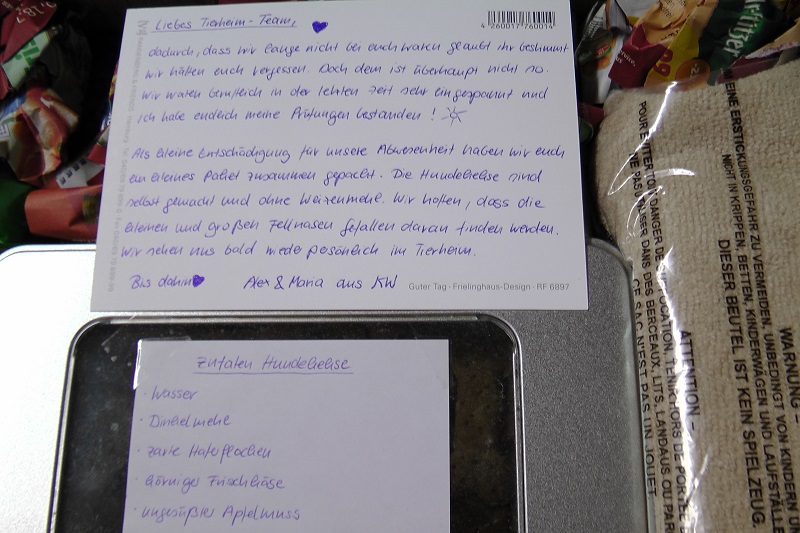 Liebes Tierheim-Team,
4 260017 760014
dadurch, dass wir lange nicht bei euch waren glaubt ihr bestimmt
wir hätten euch vergessen. Doch dem ist überhaupt nicht so.
Wir waren beruflich in der letzten Zeit sehr eingespannt und
ich habe endlich meine Prüfungen bestanden!
Als kleine Entschädigung für unsere Abwesenheit haben wir euch
ein kleines Paket zusammen gepackt. Die Hundekekse sind
selbst gemacht und ohne Weizenmehl. Wir hoffen, dass die
kleinen und großen Fellnasen gefallen daran finden werden.
Wir sehen uns bald wieder persönlich im Tierheim.
Bis dahin Alex & Maria aus KW
Guter Tag · Frielinghaus-Design · RF 6897
Zutaten Hundekekse
· Wasser
· Dinkelmehl
· zarte Haferflocken
· körniger Frischkäse
· ungesüßter Apfelmuss
WARNUNG –
EINE ERSTICKUNGSGEFAHR ZU VERMEIDEN, UNBEDINGT VON KINDERN
NICHT IN KRIPPEN, BETTEN, KINDERWAGEN UND LAUFSTÄLLE
DIESER BEUTEL IST KEIN SPIELZEUG.
ATTENTION –
POUR EVITER TOUT DANGER DE SUFFOCATION, TENIR HORS DE PORTEE
NE PAS UTILISER DANS DES BERCEAUX, LITS, LANDAUS OU PAR
CE SAC N'EST PAS UN JOUET